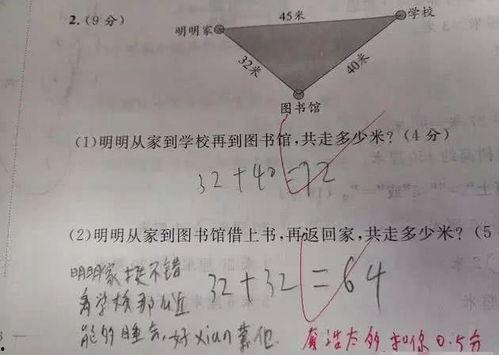 2.(9分)
45米
学校
明明家
32米
40米
图书馆
(1)明明从家到学校再到图书馆,共走多少米?(4分)
32+40=72
(2)明明从家到图书馆借上书,再返回家,共走多少米?(5
明明家挺不错
离学校那么近
32+32=64
能多睡会,好xian慕他.
看浩太多 扣你0.5分